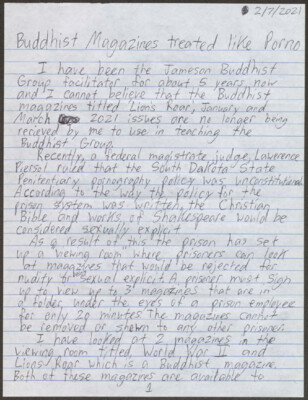 2/7/2021
Buddhist Magazines treated like Porno
I have been the Jameson Buddhist
Group facilitator for about 5 years now
and I cannot believe that the Buddhist
magazines titled Lions Roar, January and
March 2021 issues are no longer being
recieved by me to use in teaching the
Buddhist Group.
Recently, a federal magistrate judge, Lawerence
Piersol ruled that the South Dakota State
Penitentiary pornography policy was unconstitutional.
According to the way the policy for the
prison system was written, the Christian
Bible and works of Shakespeare would be
considered sexually explicit.
As a result of this the prison has set
up a viewing room where prisoners can look
at magazines that would be rejected for
nudity or being sexual explicit. A prisoner must sign
up to view up to 3 magazines that are in
a folder, under the eyes of a prison employee
for only 20 minutes. The magazines cannot
be removed or shown to any other prisoner.
I have looked at 2 magazines in the
viewing room titled, World War II and
Lions Roar which is a Buddhist magazine.
Both of these magazines are available to
1